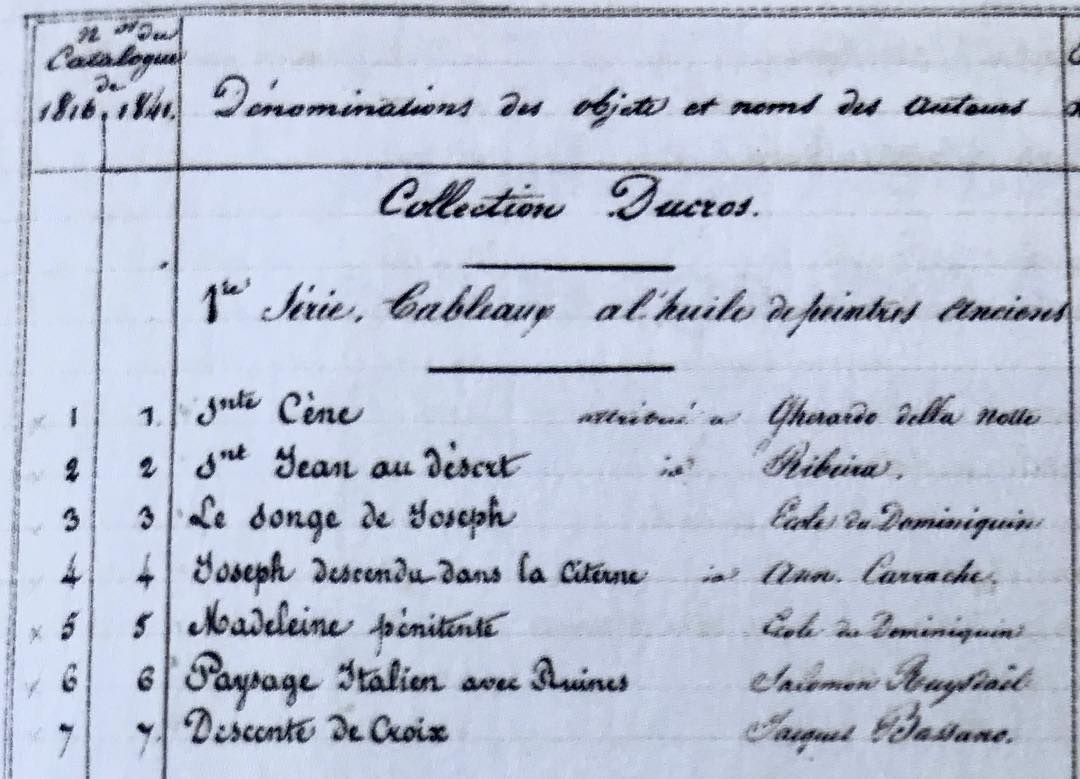 Nos du
Catalogue
de
1816. 1841. Dénominations des objets et noms des auteurs
Collection Ducros.
1re Série. Tableaux a l'huile de peintres anciens
x 1 1. Snte Cène attribué a Gherardo della notte
x 2 2 Snt Jean au désert id Ribeira.
3 3 Le songe de Joseph Ecole du Dominiquin
x 4 4 Joseph descendu dans la Citerne id Ann. Carrache.
x 5 5 Madeleine pénitente Ecole du Dominiquin
x 6 6 Paysage Italien avec Ruines Salomon Ruysdaël
x 7 7. Descente de Croix Jacques Bassano.